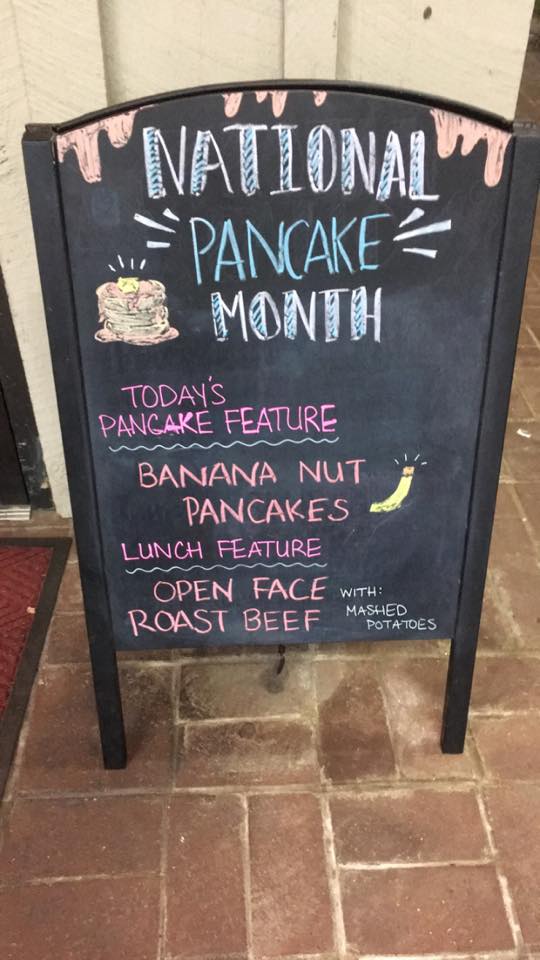 NATIONAL
PANCAKE
MONTH
TODAY'S
PANCAKE FEATURE
BANANA NUT
PANCAKES
LUNCH FEATURE
OPEN FACE
ROAST BEEF
WITH:
MASHED
POTATOES